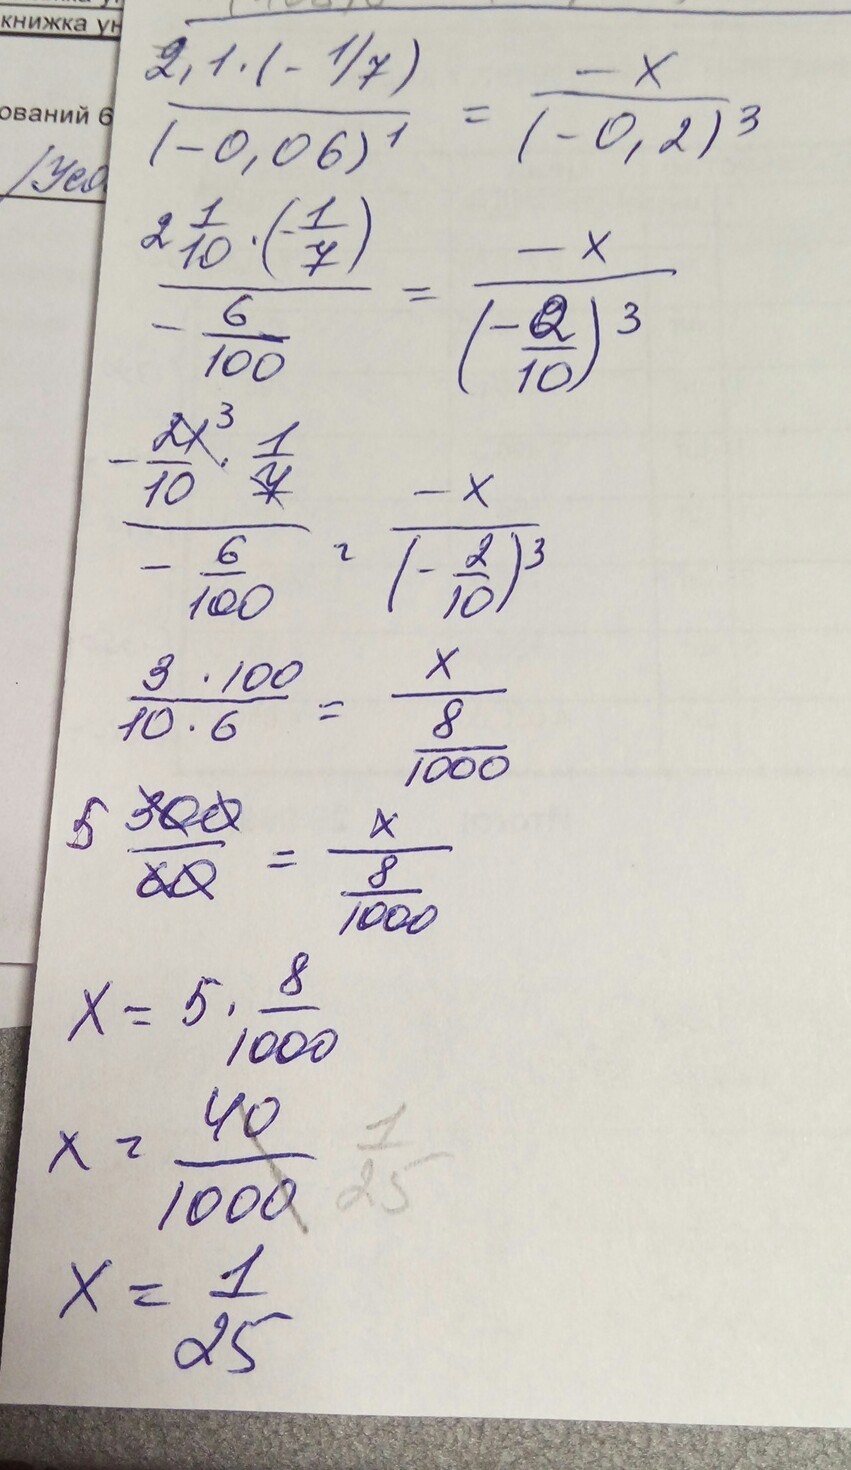 книжка ун
ований 6
2,1·(-1/7) / (-0,06)¹ = -x / (-0,2)³
2 1/10 · (-1/7) / - 6/100 = -x / (-2/10)³
- 21/10 ³ · 1/7 / - 6/100 = -x / (-2/10)³
3·100 / 10·6 = x / 8/1000
5 300/60 = x / 8/1000
x = 5 · 8/1000
x = 40/1000 1/25
x = 1/25